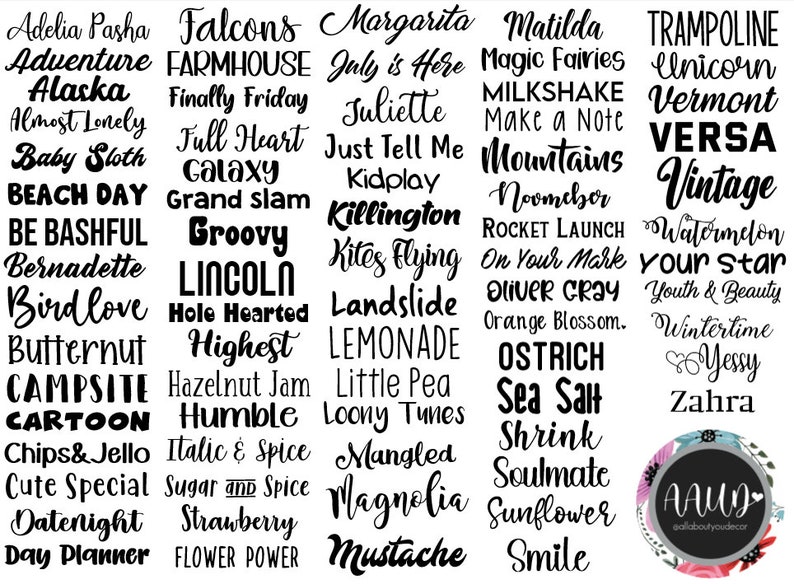 Adelia Pasha
Adventure
Alaska
Almost Lonely
Baby Sloth
BEACH DAY
BE BASHFUL
Bernadette
Birdlove
Butternut
CAMPSITE
CARTOON
Chips&Jello
Cute Special
Datenight
Day Planner
Falcons
FARMHOUSE
Finally Friday
Full Heart
GALAXY
Grand Slam
Groovy
LINCOLN
Hole Hearted
Highest
Hazelnut Jam
Humble
Italic & Spice
Sugar and Spice
Strawberry
FLOWER POWER
Margarita
July is Here
Juliette
Just Tell Me
Kidplay
Killington
Kites Flying
Landslide
LEMONADE
Little Pea
Loony Tunes
Mangled
Magnolia
Mustache
Matilda
Magic Fairies
MILKSHAKE
Make a Note
Mountains
Noovmeber
Rocket Launch
On Your Mark
Oliver Gray
Orange Blossom.
OSTRICH
Sea Salt
Shrink
Soulmate
Sunflower
Smile
TRAMPOLINE
Unicorn
Vermont
VERSA
Vintage
Watermelon
Your Star
Youth & Beauty
Wintertime
Yessy
Zahra
AAUD
@allaboutyoudecor